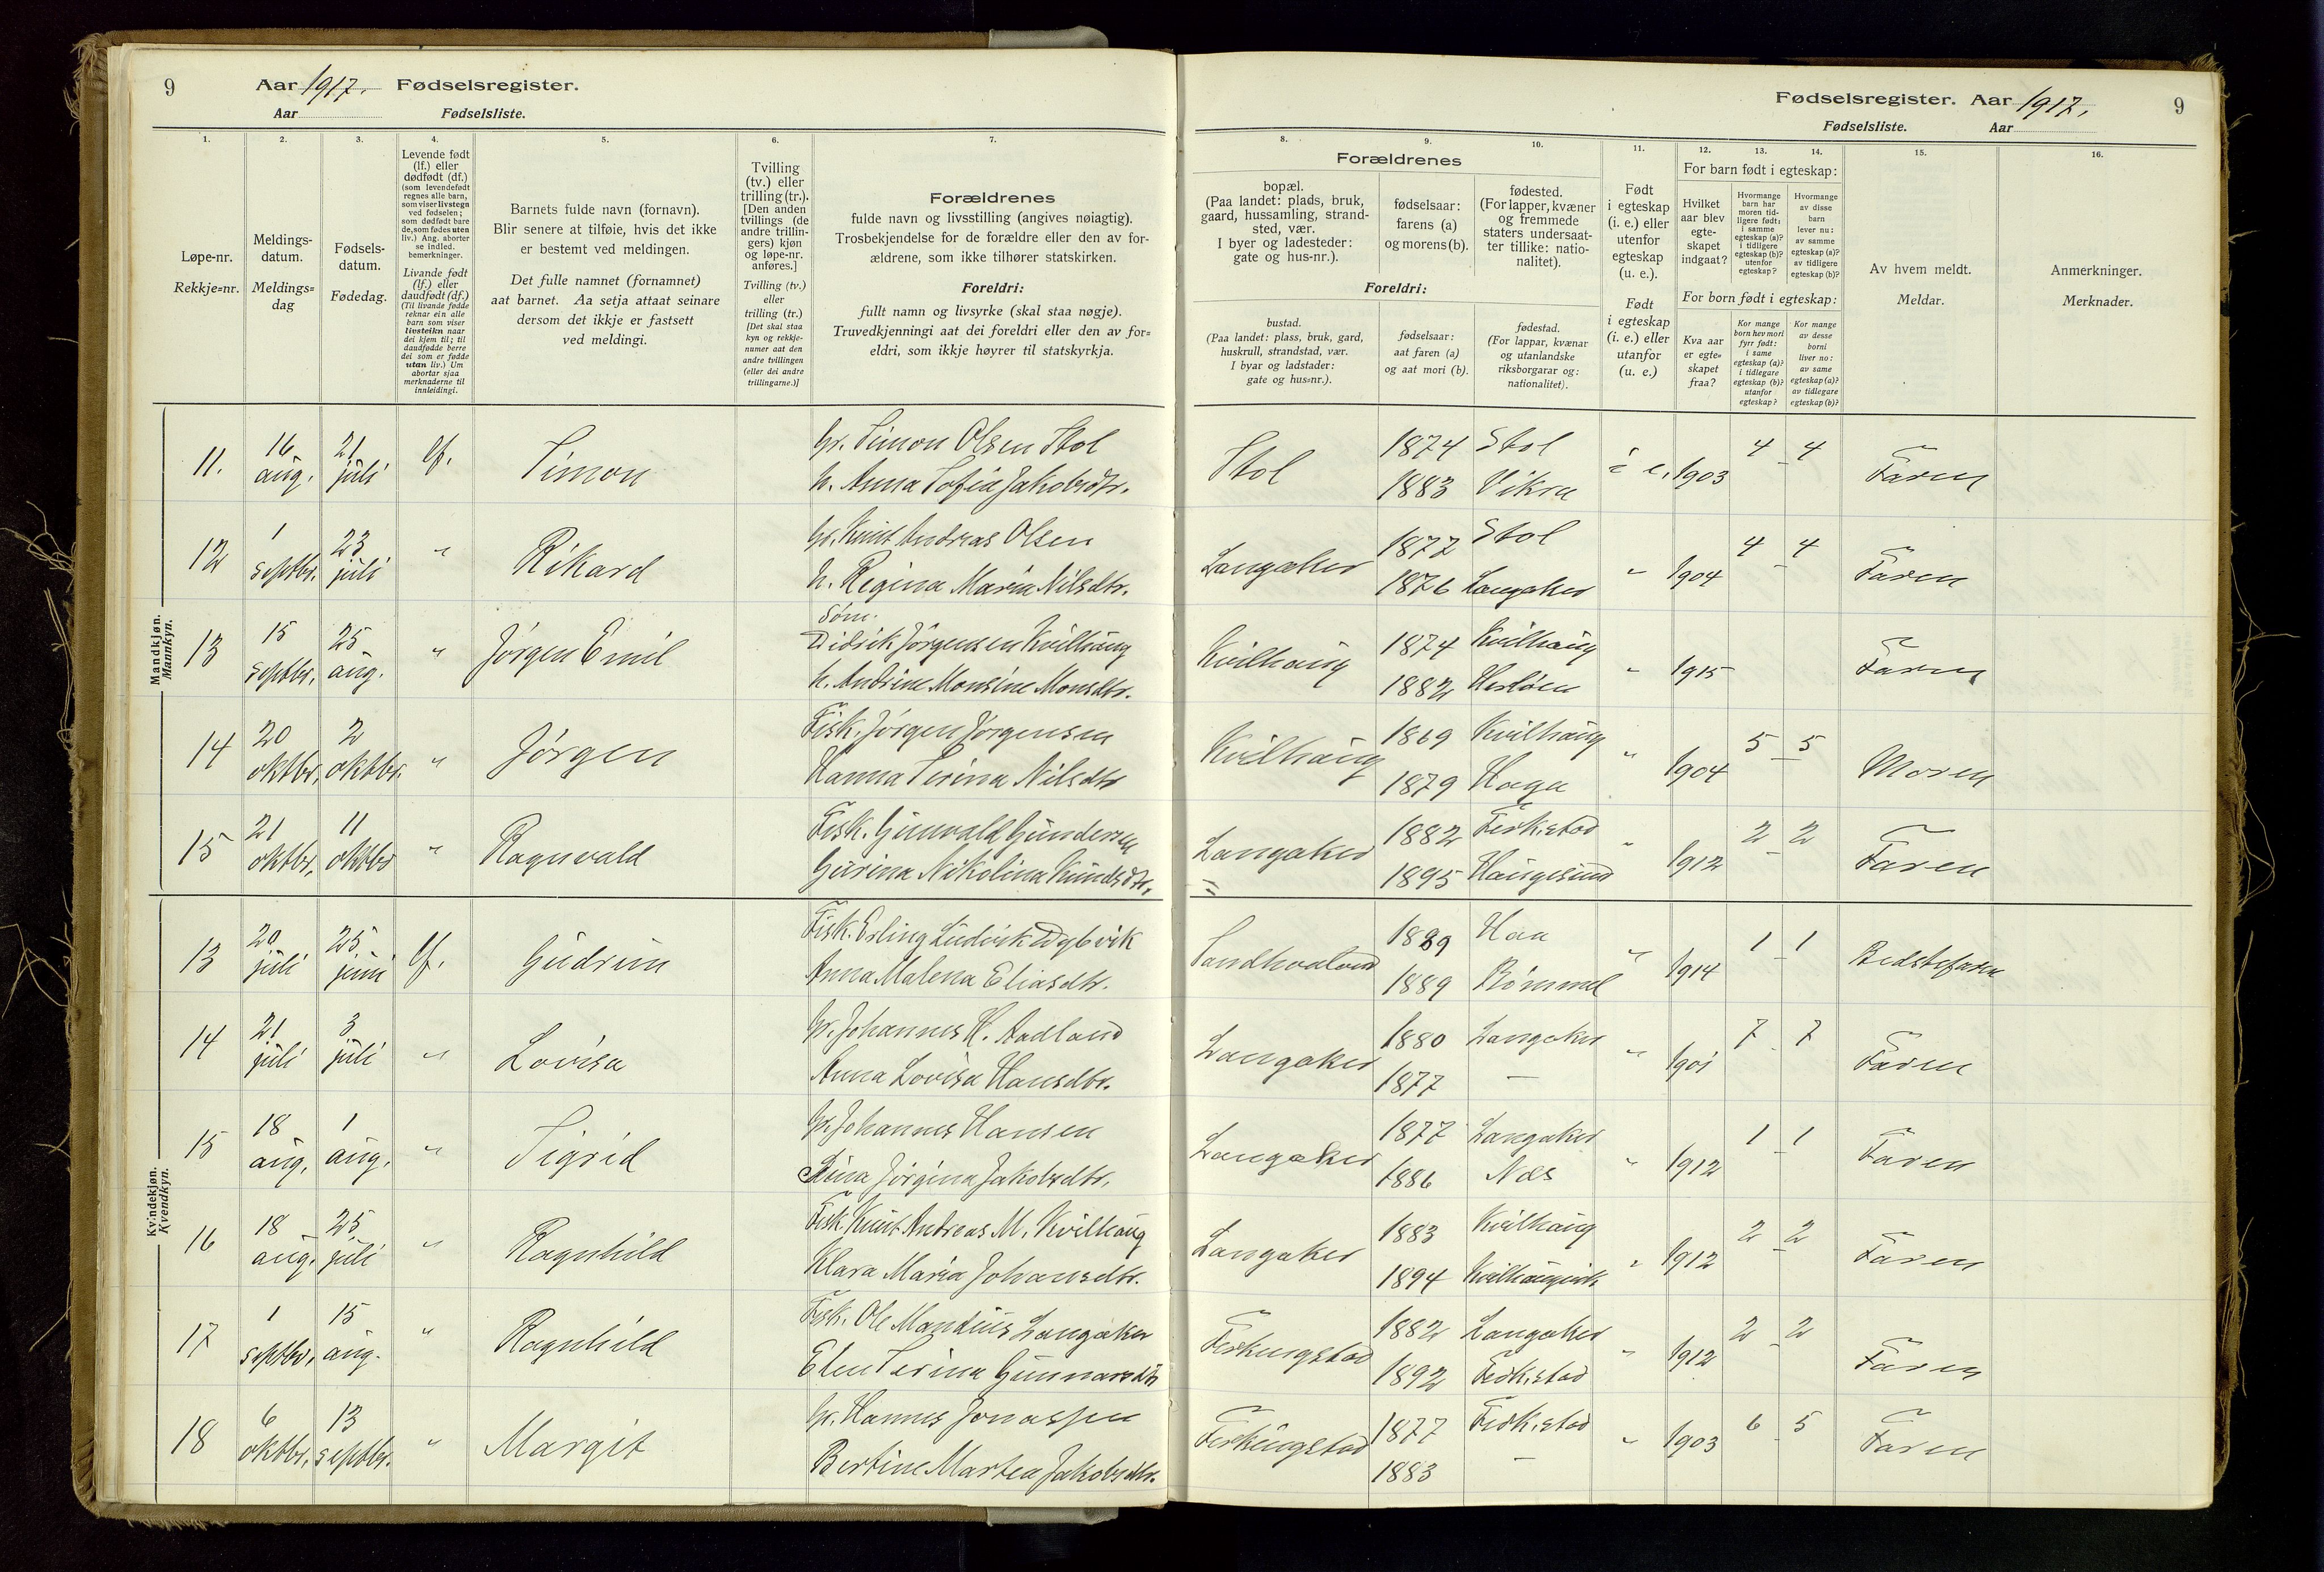 9
Aar 1917. Fødselsregister.
Aar Fødselsliste.
1.
2.
3.
4.
5.
6.
7.
Løpe-nr.
Rekkje=nr.
Meldings-
datum.
Meldings=
dag
Fødsels-
datum.
Fødedag.
Levende født
(lf.) eller
dødfødt (df.)
(som levendefødt
regnes alle barn,
som viser livstegn
ved fødselen;
som dødfødt bare
de, som fødes uten
liv.) Ang. aborter
se indled.
bemerkninger.
Livande født
(lf.) eller
daudfødt (df.)
(Til livande fødde
reknar ein alle
barn som viser
livsteikn naar
dei kjem til; til
daudfødde berre
dei som er fødde
utan liv.) Um
abortar sjaa
merknaderne til
innleidingi.
Barnets fulde navn (fornavn).
Blir senere at tilføie, hvis det ikke
er bestemt ved meldingen.
Det fulle namnet (fornamnet)
aat barnet. Aa setja attaat seinare
dersom det ikkje er fastsett
ved meldingi.
Tvilling
(tv.) eller
trilling (tr.).
[Den anden
tvillings (de
andre trillin-
gers) kjøn
og løpe-nr.
anføres.]
Tvilling (tv.)
eller
trilling (tr.)
[Det skal staa
kyn og rekkje-
numer aat den
andre tvillingen
(eller dei andre
trillingarne.)]
Forældrenes
fulde navn og livsstilling (angives nøiagtig).
Trosbekjendelse for de forældre eller den av for-
ældrene, som ikke tilhører statskirken.
Foreldri:
fullt namn og livsyrke (skal staa nøgje).
Truvedkjenningi aat dei foreldri eller den av for=
eldri, som ikkje høyrer til statskyrkja.
Mandkjøn.
Mannkyn.
11. 16 aug. 21 juli lf. Simon
Gr. Simon Olsen Stol
h. Anna Sofia Jakobsdtr.
12 1 septbr. 23 juli " Rikard
Gr. Knut Andreas Olsen
h. Regina Maria Nilsdtr.
13 15 septbr. 25 aug. " Jørgen Emil
Søm.
Didrik Jørgensen Kvilhaug
h. Andrine Monsine Monsdtr.
14 20 oktbr. 2 oktbr. " Jørgen
Fisk. Jørgen Jørgensen
Hanna Serina Nilsdtr
15 21 oktbr. 11 oktbr " Ragnvald
Fisk. Gunvald Gundersen
Gurina Nikolina Knudsdtr.
Kvindekjøn.
Kvendkyn.
13 20 juli 25 juni lf. Gudrun
Fisk. Erling Ludvik Dybvik
Anna Malena Eliasdtr.
14 21 juli 3 juli " Lovisa
Gr. Johannes H. Aadland
Anna Lovisa Hansdtr.
15 18 aug. 1 aug. " Sigrid
Gr. Johannes Hansen
Jørgina Jakobsdtr.
16 18 aug. 25 juli " Ragnhild
Fisk. Knut Andreas M. Kvilhaug
Klara Maria Johansdtr.
17 1 septbr. 15 aug. " Ragnhild
Fisk. Ole Mandius Langaker
Elen Serina Gunnarsdtr
18 6 oktbr. 13 septbr. " Margit
Gr. Hannes Jonassen
Bertine Martea Jakobsdtr.
Fødselsregister. Aar 1917. 9
Fødselsliste. Aar
8.
9.
10.
11.
12.
13.
14.
15.
16.
Forældrenes
bopæl.
(Paa landet: plads, bruk,
gaard, hussamling, strand-
sted, vær.
I byer og ladesteder:
gate og hus-nr.).
fødselsaar:
farens (a)
og morens (b).
fødested.
(For lapper, kvæner
og fremmede
staters undersaat-
ter tillike: natio-
nalitet).
Foreldri:
bustad.
(Paa landet: plass, bruk, gard,
huskrull, strandstad, vær.
I byar og ladstader:
gate og hus=nr.).
fødselsaar:
aat faren (a)
og aat mori (b).
fødestad.
(For lappar, kvænar
og utanlandske
riksborgarar og:
nationalitet).
Født
i egteskap
(i. e.) eller
utenfor
egteskap
(u. e.).
Født
i egteskap
(i. e.) eller
utanfor
(u. e.)
For barn født i egteskap:
Hvilket
aar blev
egte-
skapet
indgaat?
Hvormange
barn har
moren tid-
ligere født:
i samme
egteskap (a)?
i tidligere
egteskap (b)?
utenfor
egteskap?
Hvormange
av disse
barn
lever nu:
av samme
egteskap (a)?
av tidligere
egteskap (b)?
For born født i egteskap:
Kva aar
er egte=
skapet
fraa?
Kor mange
born hev mori
fyrr født:
i same
egteskap (a)?
i tidlegare
egteskap (b)?
utanfor
egteskap?
Kor mange
av desse
borni
liver no:
av same
egteskap (a)?
av tidlegare
egteskap (b)?
Av hvem meldt.
Meldar.
Anmerkninger.
Merknader.
Stol 1874 Stol i e. 1903 4 - 4 Faren
1883 Vikra
Langaker 1877 Stol " 1904 4 - 4 Faren
1876 Langaker
Kvilhaug 1874 Kvilhaug " 1915 Faren
1882
Kvilhaug 1869 Kvilhaug " 1904 5 - 5 Moren
1879 Haga
Langaker 1882 Ferk.stad " 1912 2 - 2 Faren
1895 Haugesund
Sandhaaland 1889 Haa " 1914 1 - 1 Bedstefaren
1889 Bømmel
Langaker 1880 Langaker " 1901 7 - 7 Faren
1877 —
Langaker 1877 Langaker " 1912 1 - 1 Faren
1886 Næs
Langaker 1883 Kvilhaug " 1912 2 - 2 Faren
1894 Kvilhaugvik
Ferkingstad 1882 Langaker " 1912 2 - 2 Faren
1892 Ferk.stad
Ferkingstad 1877 Ferk.stad " 1903 6 - 5 Faren
1883 —